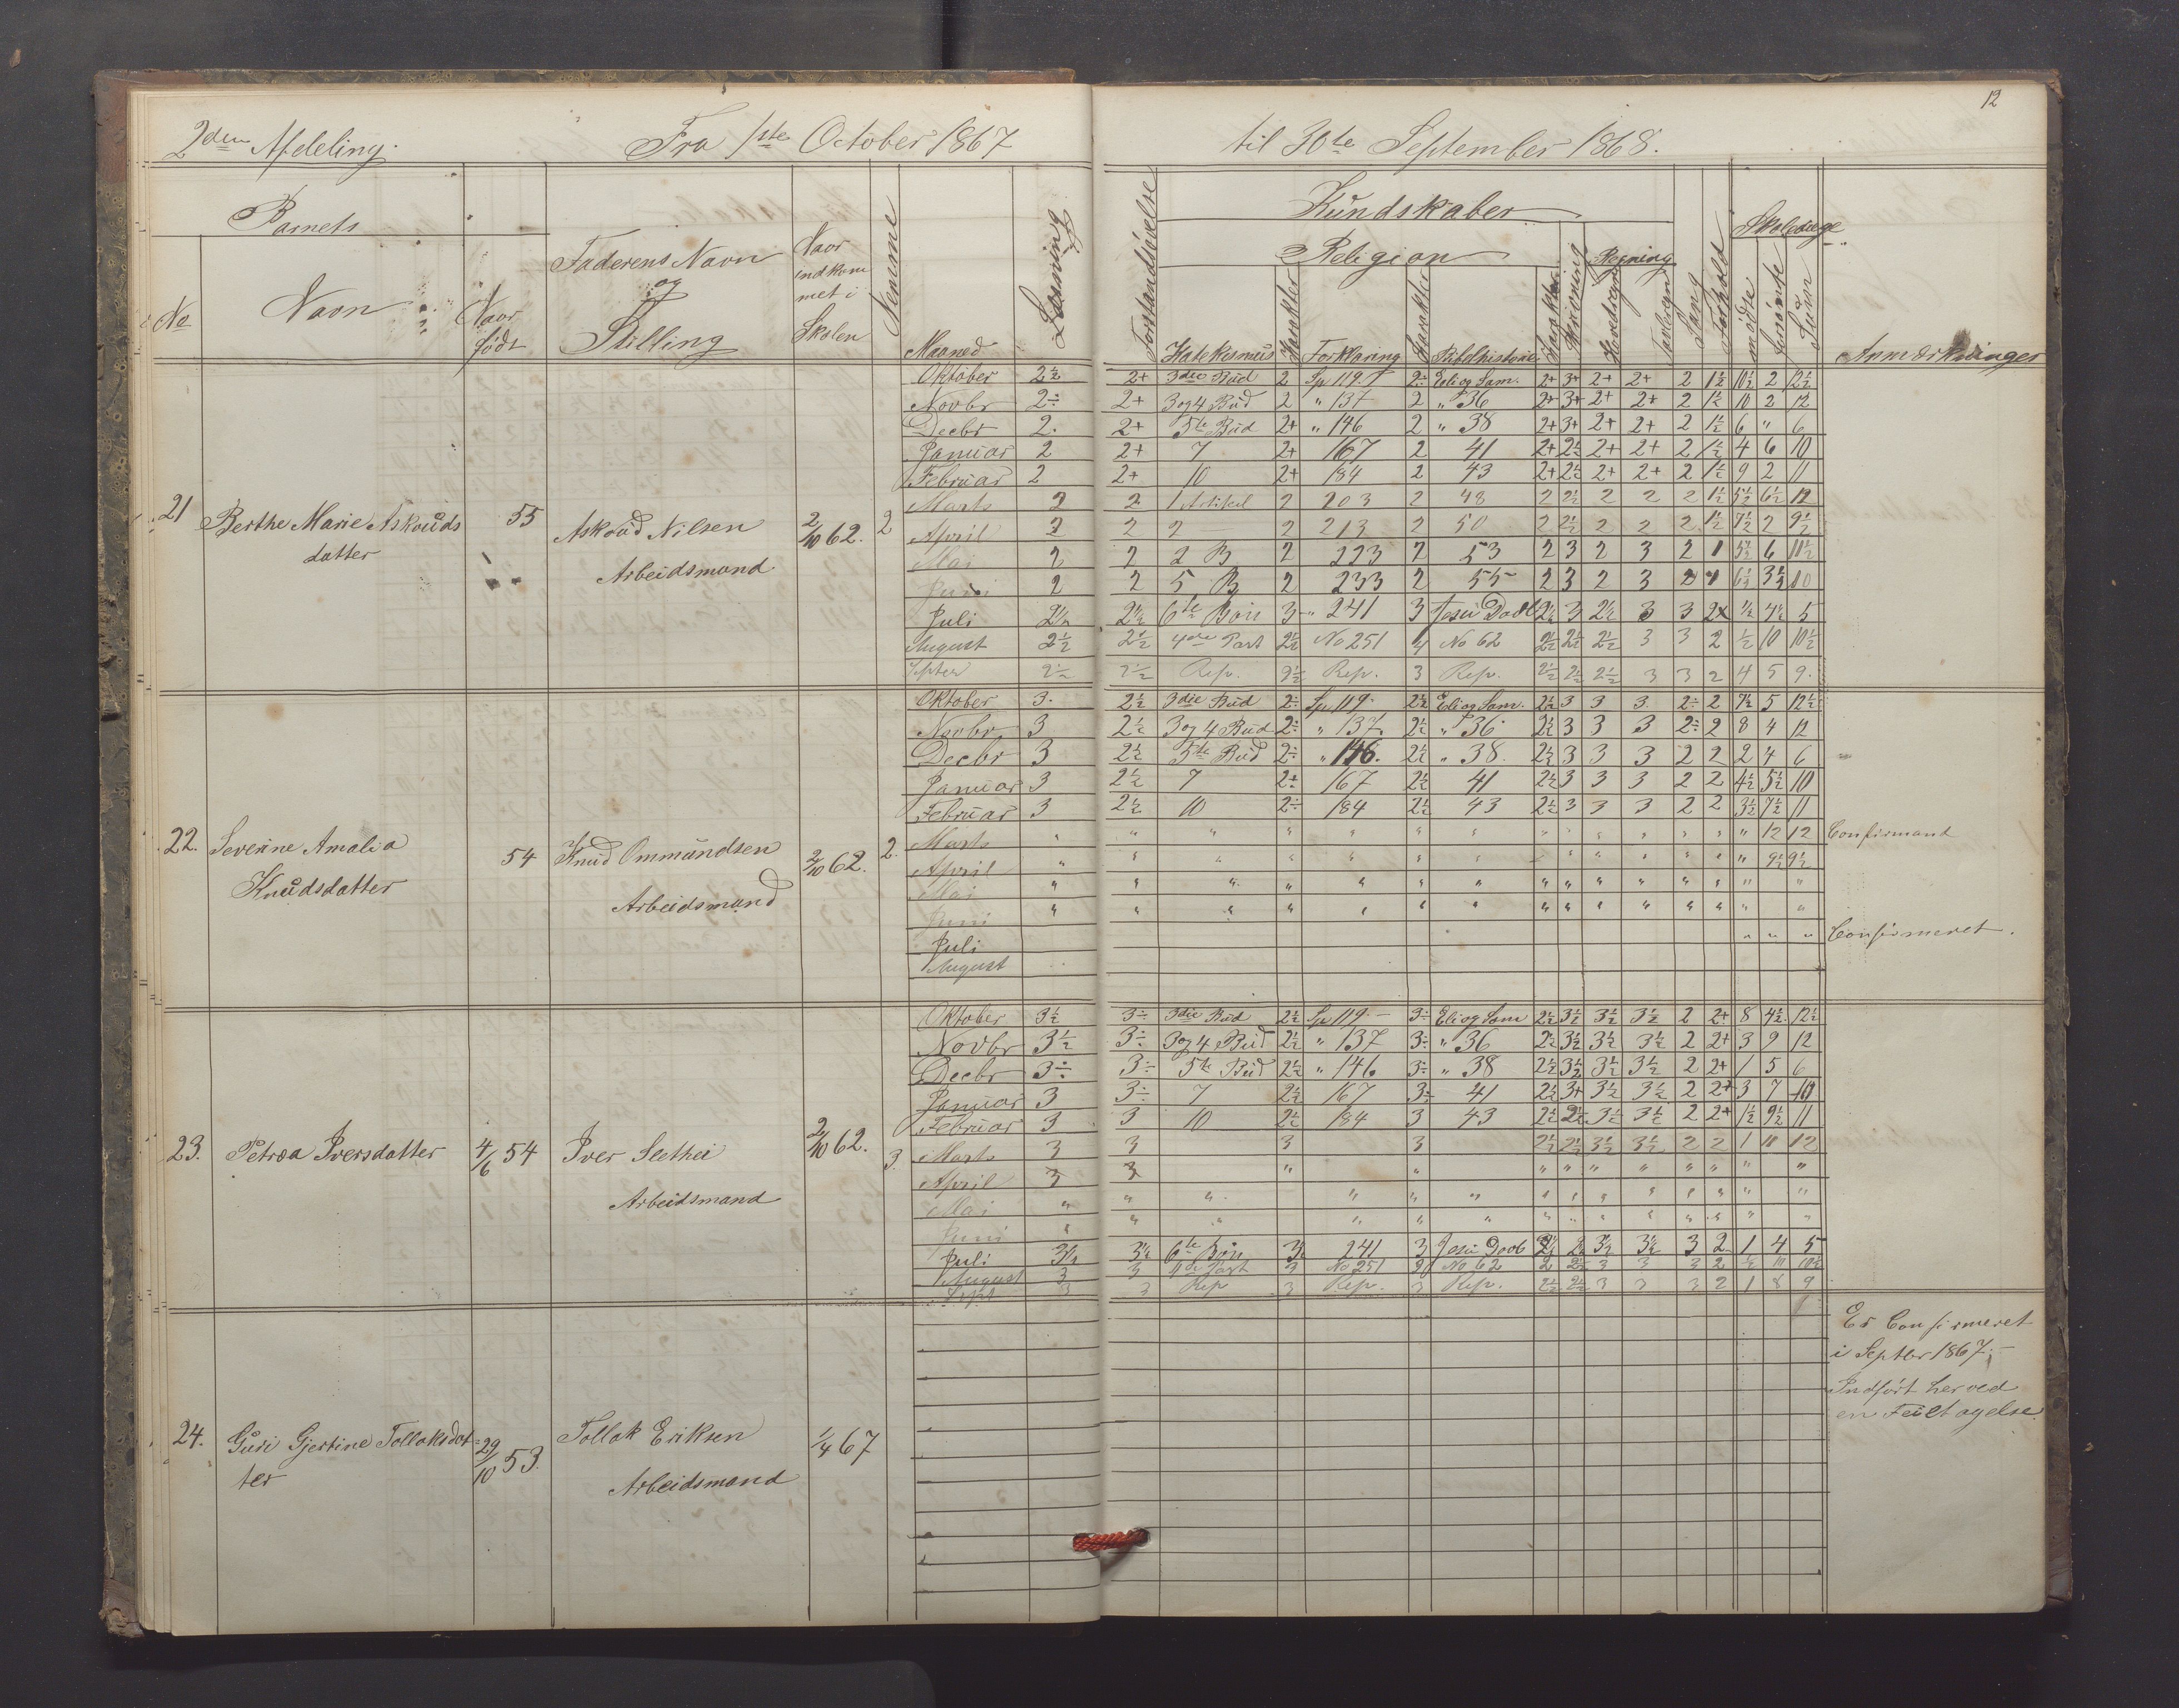 12
2den Afdeling. Fra 1ste October 1867 til 30te September 1868.
Barnets
No Navn Naar født Faderens Navn og Stilling Naar indkommet i Skolen Nemme Maaned Læsning Forstandsøvelse Kundskaber Religion Katekismus Karakter Forklaring Karakter Bibelhistorie Karakter Skrivning Regning Hovedregn Tavleregn Sang Forhold Skoledage mødte forsømte Sum Anmærkninger
21 Berthe Marie Askouds datter 55 Askoud Nilsen Arbeidsmand. 2/10 62. 2
Oktober 2½ 2+ 3die Bud 2 Sp 119. 2÷ Eli og Sam. 2+ 3+ 2+ 2+ 2 1½ 10½ 2 12½
Novbr 2÷ 2+ 3 og 4 Bud 2 " 137 2 " 36 2+ 3+ 2+ 2+ 2 1½ 10 2 12
Decbr 2. 2+ 5te Bud 2+ " 146 2 " 38 2+ 3+ 2+ 2+ 2 1½ 6 " 6
Januar 2 2+ 7 2+ 167 2 41 2+ 2½ 2+ 2+ 2 1½ 4 6 10
Februar 2 2+ 10 2+ 184 2 43 2+ 2½ 2+ 2+ 2 1½ 9 2 11
Marts 2 2 1 Artikel 2 203 2 48 2 2½ 2 2 2 1½ 5½ 6½ 12
April 2 2 2 2 213 2 50 2 2½ 2 2 2 1½ 7½ 2 9½
Mai 2 2 2 B 2 223 2 53 2 3 2 3 2 1 5½ 6 11½
Juni 2 2 5 B 2 233 2 55 2 3 2 3 2 1 6½ 3½ 10
Juli 2½ 2½ 6te Bøn 3 " 241 3 Jesu Daab 2½ 3 2½ 3 3 2 ½ 4½ 5
August 2½ 2½ 4de Part 2½ No 251 4 No 62 2½ 2½ 2½ 3 3 2 ½ 10 10½
Septer 2½ 2½ Rep. 2½ Rep. 3 Rep. 2½ 2½ 2½ 3 3 2 4 5 9.
22. Severine Amalia Knudsdatter 54 Knud Ommundsen Arbeidsmand 2/10 62. 2.
Oktober 3. 2½ 3die Bud 2÷ Sp 119. 2½ Eli og Sam. 2½ 3 3 3. 2÷ 2 7½ 5 12½
Novbr 3 2½ 3 og 4 Bud 2÷ " 137. 2½ " 36. 2½ 3 3 3 2÷ 2 8 4 12
Decbr 3 2½ 5te Bud 2÷ " 146. 2½ " 38. 2½ 3 3 3 2 2 2 4 6
Januar 3 2½ 7 2÷ 167 2½ 41 2½ 3 3 3 2 2 4½ 5½ 10
Februar 3 2½ 10 2÷ 184 2½ 43 2½ 3 3 3 2 2 3½ 7½ 11
Marts " " " " " " " " " " " " " " 12 12 Confirmand
April " " " " " " " " " " " " " " 9½ 9½
Mai " " " " " " " " " " " " " " "
Juni " " " " " " " " " " " " " " "
Juli " " " Confirmeret.
August
23. Petrea Iversdatter 4/6 54 Iver Seethei Arbeidsmand 2/10 62. 3.
Oktober 3½ 3÷ 3die Bud 2½ Sp 119. 3÷ Eli og Sam 2½ 3½ 3½ 3½ 2 2+ 8 4½ 12½
Novbr 3½ 3÷ 3 og 4 Bud 2½ " 137 3÷ " 36 2½ 3½ 3½ 3½ 2 2+ 3 9 12
Decbr 3÷ 3÷ 5te Bud 2½ " 146 3÷ " 38 2½ 3½ 3½ 3½ 2 2+ 1 5 6
Januar 3 3÷ 7 2½ 167 3÷ 41 2½ 3+ 3½ 3½ 2 2+ 3 7 10
Februar 3 3 10 2½ 184 3 43 2½ 2½ 3½ 3½ 2 2+ 1½ 9½ 11
Marts 3 3 3 3 2½ 2½ 3½ 3½ 2 2 1 11 12
April 3 3 " " " " " " " " " "
Mai " " " " " " " " " " " " " "
Juni " " " " " " " " " " " " " "
Juli 3½ 3½ 6te Bøn 3½ 241 3 Jesu Daab 2½ 3½ 3½ 3 2 1 4 5
August 3 3 4de Part 3 No 251 3 No 62 2 2½ 3 3 3 2 ½ 10 10½
Sept 3 3 Rep 3 Rep. 3 Rep. 2½ 2½ 3 3 3 2 1 8 9
24. Guri Gjertine Tollaksdatter 29/10 53. Tollak Eriksen Arbeidsmand 1/4 67
Er Confirmeret
i Septbr 1867.
Indført her ved
en Feiltagelse.